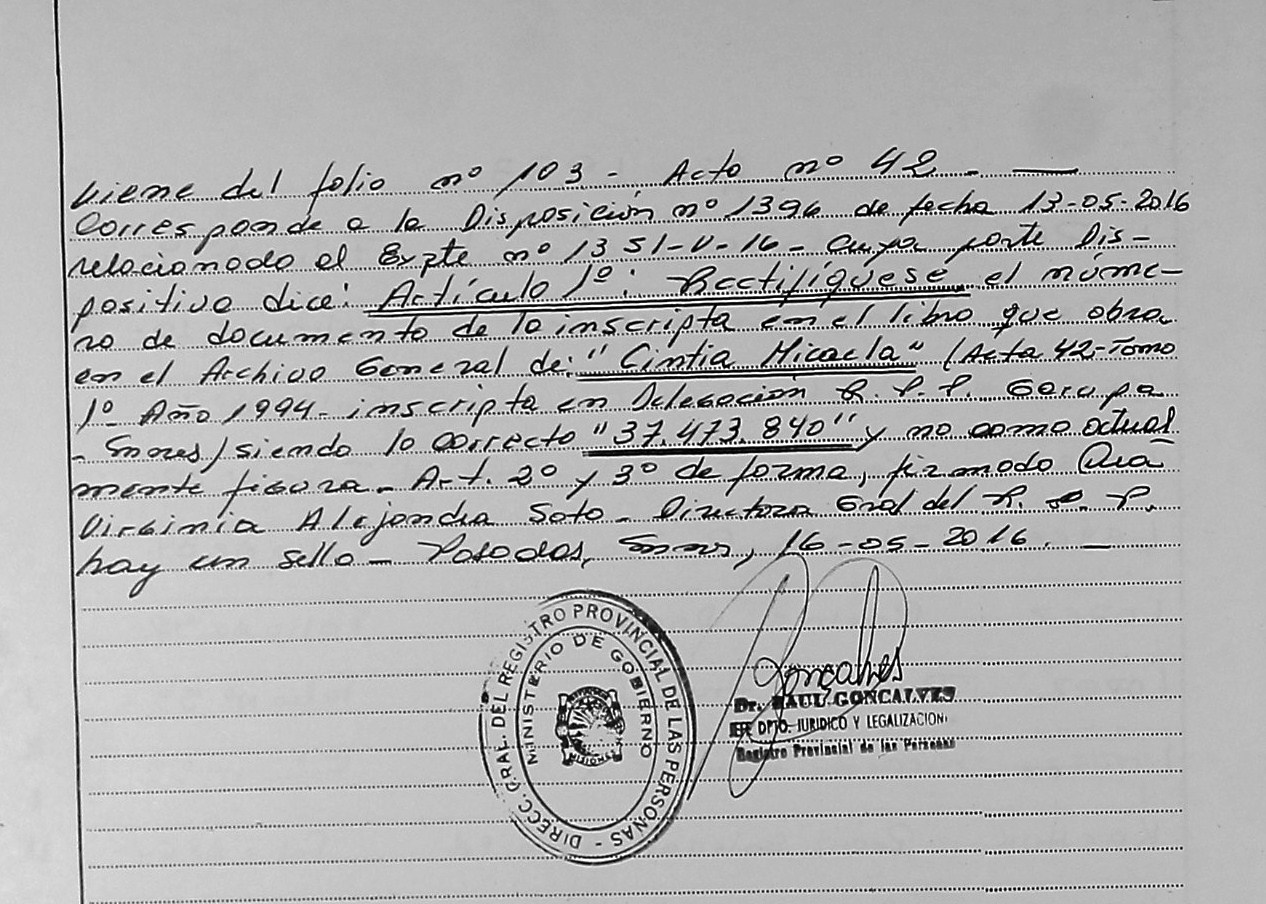 Viene del folio nº 103 - Acta nº 42 - —
Corresponde a la Disposición nº 1396 de fecha 13-05-2016
relacionado al Expte nº 1351-V-16 - cuya parte Dis-
positivo dice: Artículo 1º: Rectifíquese el núme-
ro de documento de la inscripta en el libro que obra
en el Archivo General de: "Cintia Micaela" (Acta 42-Tomo
1º Año 1994- inscripta en Delegación R.P.P. Garupa
- Mnes/ siendo lo correcto "37.473.840" y no como actual
mente figura - Art. 2º y 3º de forma, firmado Dra
Virginia Alejandra Soto - Directora Gral del R.P.P.
hay un sello - Posadas, Mnes, 16-05-2016. —
DIRECC. GRAL. DEL REGISTRO PROVINCIAL DE LAS PERSONAS -
MINISTERIO DE GOBIERNO
MISIONES
Goncalves
Dr. RAUL GONCALVES
DPTO. JURIDICO Y LEGALIZACION
Registro Provincial de las Personas